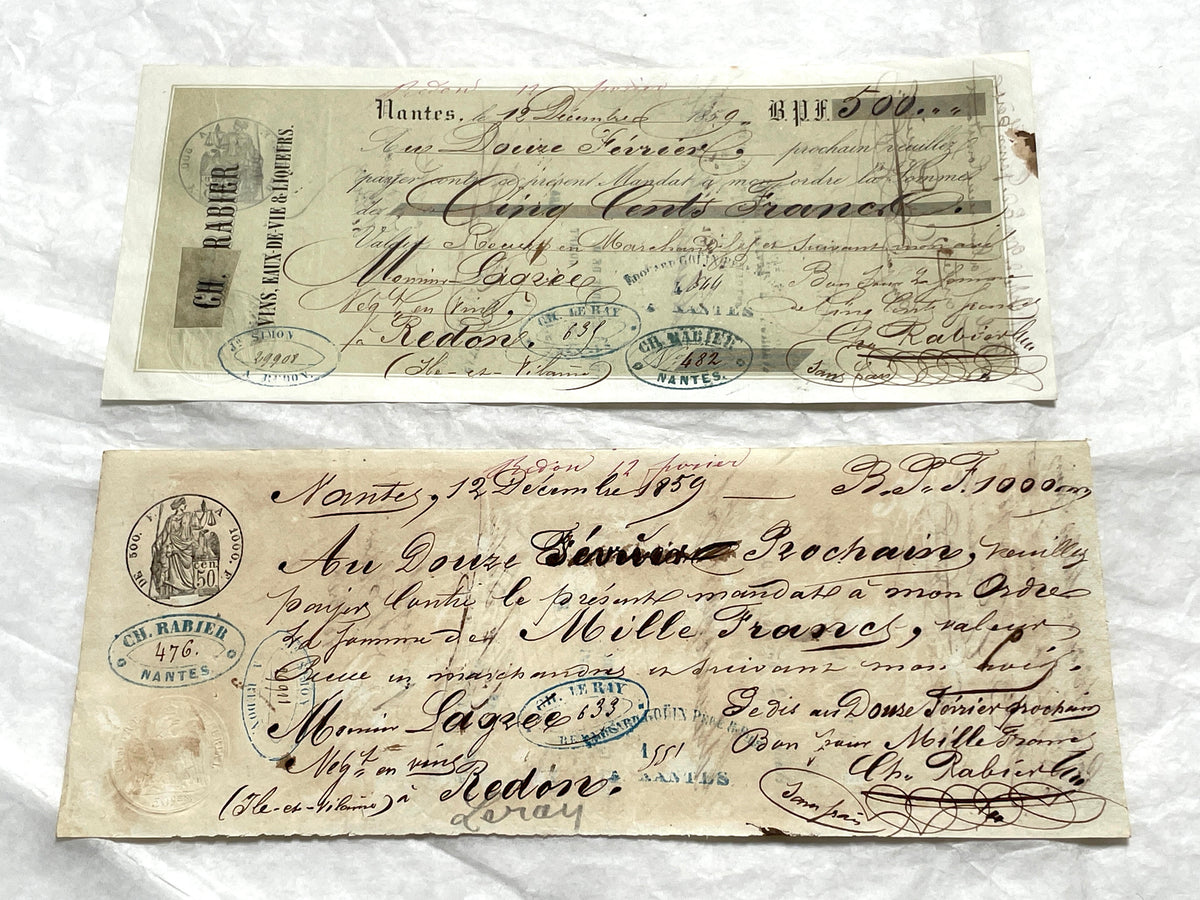 Redon 12 février
Nantes, le 12 Décembre 1859. B.P.F. 500
Au Douze Février prochain veuillez
payer contre ce présent Mandat à mon ordre la Somme
de Cinq Cents Francs
Valeur Reçue en Marchandises et suivant mon avis
CH. RABIER
VINS, EAUX-DE-VIE & LIQUEURS.
Monsieur Lagrée
Négt. en Vins,
à Redon.
(Ile-et-Vilaine)
Bon pour la somme
de Cinq Cents francs
Ch. Rabier
Sans frais
Jh. SIMON
29908
A REDON
CH. LE RAY
635
EDOUARD GOUIN
NANTES
CH. RABIER
482
NANTES.
Redon 12 février
Nantes, 12 Décembre 1859 — B.P.F. 1000
Au Douze Février Prochain, veuillez
payer Contre le présent mandat à mon Ordre
La Somme de Mille Francs, valeur
Reçue en marchandises et suivant mon avis.
DE 500. F. A 1000. F.
50 cen
CH. RABIER
476.
NANTES.
Monsieur Lagrée
Négt. en vins
(Ile-et-Vilaine) à Redon.
CH. LE RAY
633
EDOUARD GOUIN
1551
NANTES
Je dis au Douze Février prochain
Bon pour Mille Francs
Ch. Rabier
Sans frais
Leray